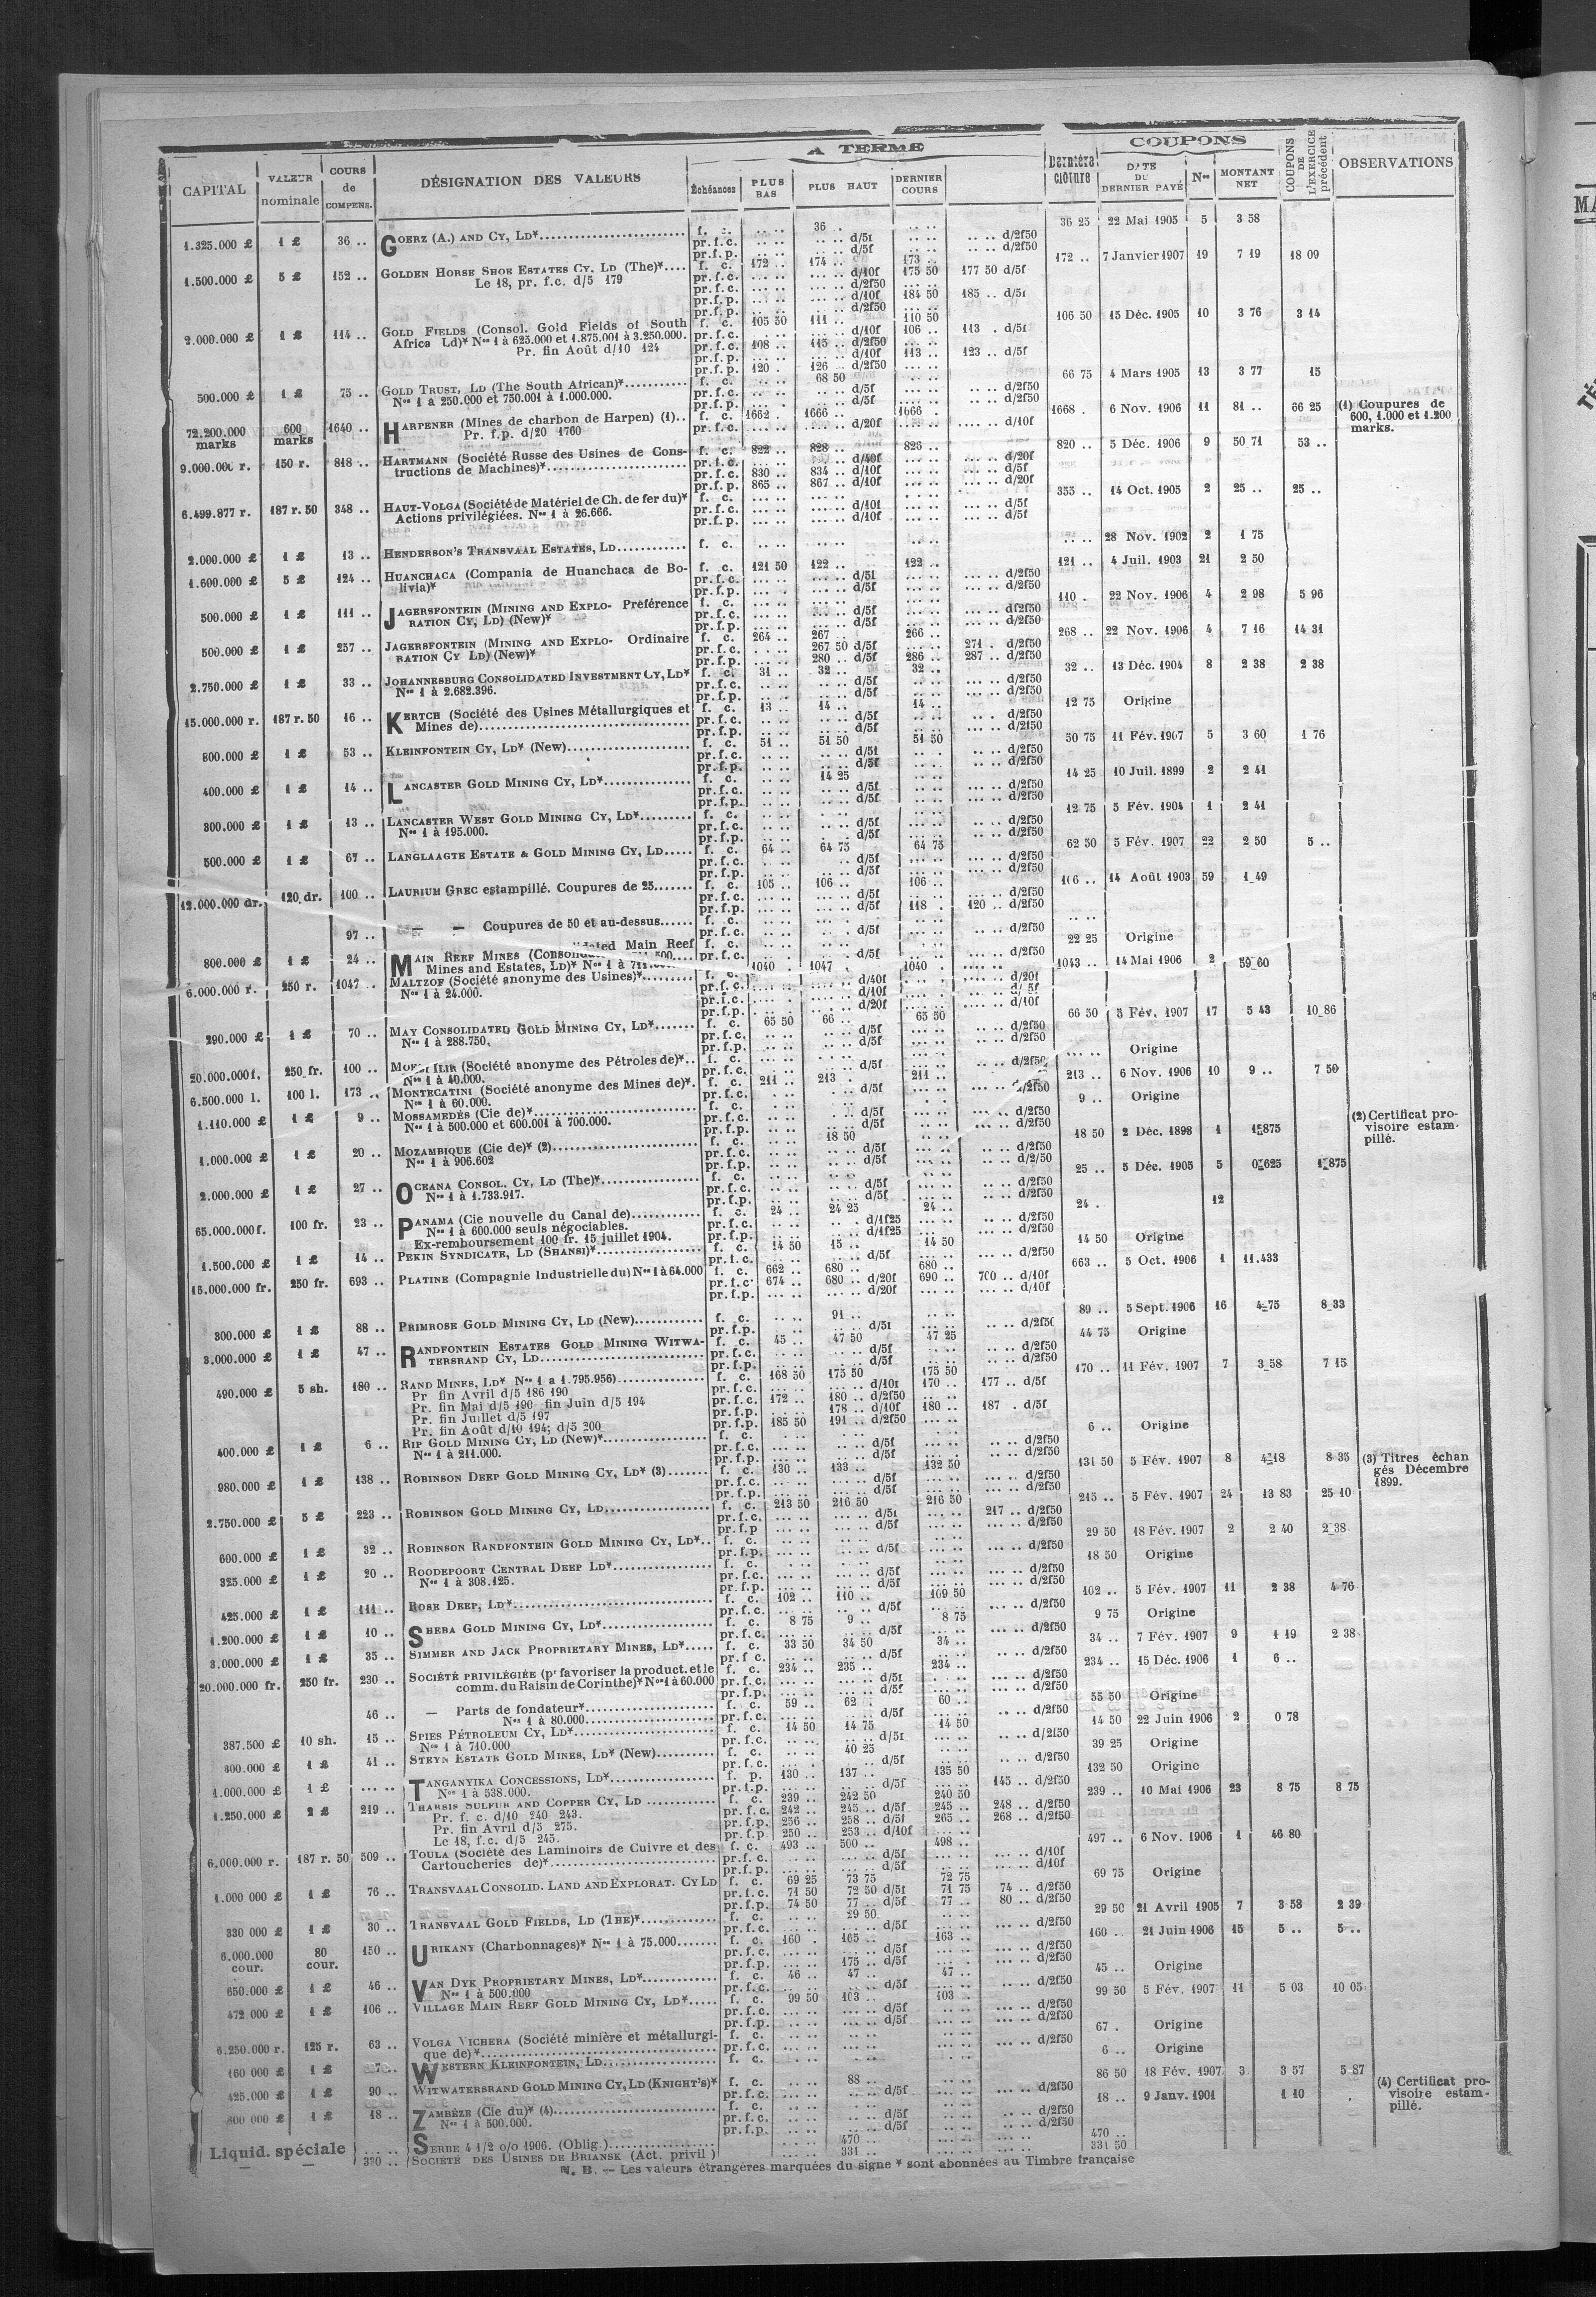 A TERME
COUPONS
CAPITAL | VALEUR nominale | COURS de COMPENS. | DÉSIGNATION DES VALEURS | Échéances | PLUS BAS | PLUS HAUT | DERNIER COURS | Dernière clôture | DATE DU DERNIER PAYÉ | Nos | MONTANT NET | COUPONS DE L'EXERCICE précédent | OBSERVATIONS
1.325.000 £ 1 £ 36 .. GOERZ (A.) AND CY, LD* f. c. 36 .. 36 25 22 Mai 1905 5 3 58
1.500.000 £ 5 £ 152 .. GOLDEN HORSE SHOE ESTATES CY. LD (The)* f. c. 172 .. 174 .. 173 .. 172 .. 7 Janvier 1907 19 7 19 18 09
Le 18, pr. f.c. d/5 179
pr.f.c. .. d/10f 175 50 177 50 d/5f
pr.f.p. .. d/10f 184 50 185 .. d/5f
2.000.000 £ 1 £ 114 .. GOLD FIELDS (Consol. Gold Fields of South f. c. 105 50 111 .. 110 50 106 50 15 Déc. 1905 10 3 76 3 14
Africa Ld)* Nos 1 à 625.000 et 1.875.001 à 3.250.000. pr.f.c. .. d/10f 106 .. 113 . d/5f
Pr. fin Août d/10 124 pr.f.c. 108 .. 115 .. d/2f50
pr.f.p. .. d/10f 113 .. 123 .. d/5f
pr.f.p. 120 . 126 .. d/2f50
500.000 £ 1 £ 75 .. GOLD TRUST, LD (The South African)* f. c. 68 50 66 75 4 Mars 1905 13 3 77 15
Nos 1 à 250.000 et 750.001 à 1.000.000.
72.200.000 marks 600 marks 1640 .. HARPENER (Mines de charbon de Harpen) (1).. f. c. 1662 . 1666 .. 1666 . 1668 . 6 Nov. 1906 11 81 .. 66 25 (1) Coupures de 600, 1.000 et 1.200 marks.
Pr. f.p. d/20 1760 pr.f.c. .. d/20f .. d/10f
9.000.000 r. 150 r. 818 .. HARTMANN (Société Russe des Usines de Cons- f. c. 822 .. 828 .. 825 .. 820 .. 5 Déc. 1906 9 50 71 53 ..
tructions de Machines)*
pr.f.c. 830 .. 834 .. d/10f .. d/5f
pr.f.p. 865 .. 867 .. d/10f .. d/20f
6.499.877 r. 187 r. 50 348 .. HAUT-VOLGA (Société de Matériel de Ch. de fer du)* f. c. 355 .. 14 Oct. 1905 2 25 .. 25 ..
Actions privilégiées. Nos 1 à 26.666.
2.000.000 £ 1 £ 13 .. HENDERSON'S TRANSVAAL ESTATES, LD f. c. 28 Nov. 1902 2 1 75
1.600.000 £ 5 £ 124 .. HUANCHACA (Compania de Huanchaca de Bo- f. c. 121 50 122 .. 122 .. 121 .. 4 Juil. 1903 21 2 50
livia)*
500.000 £ 1 £ 111 .. JAGERSFONTEIN (MINING AND EXPLO- Préférence f. c. 110 . 22 Nov. 1906 4 2 98 5 96
RATION CY, LD) (New)*
500.000 £ 1 £ 257 .. JAGERSFONTEIN (MINING AND EXPLO- Ordinaire f. c. 264 .. 267 .. 266 .. 268 .. 22 Nov. 1906 4 7 16 14 31
RATION CY LD) (New)* pr.f.c. 267 50 d/5f 271 . d/2f50
pr.f.p. 280 .. d/5f 286 .. 287 .. d/2f50
2.750.000 £ 1 £ 33 .. JOHANNESBURG CONSOLIDATED INVESTMENT CY, LD* f. c. 31 .. 32 .. 32 .. 32 .. 13 Déc. 1904 8 2 38 2 38
Nos 1 à 2.682.396.
15.000.000 r. 187 r. 50 16 .. KERTCH (Société des Usines Métallurgiques et f. c. 13 .. 14 .. 14 .. 12 75 Origine
Mines de)
800.000 £ 1 £ 53 .. KLEINFONTEIN CY, LD* (New) f. c. 51 .. 51 50 51 50 50 75 11 Fév. 1907 5 3 60 1 76
400.000 £ 1 £ 14 .. LANCASTER GOLD MINING CY, LD* f. c. 14 25 14 25 10 Juil. 1899 2 2 41
300.000 £ 1 £ 13 .. LANCASTER WEST GOLD MINING CY, LD* f. c. 12 75 5 Fév. 1904 1 2 41
Nos 1 à 195.000.
500.000 £ 1 £ 67 .. LANGLAAGTE ESTATE & GOLD MINING CY, LD f. c. 64 .. 64 75 64 75 62 50 5 Fév. 1907 22 2 50 5 ..
12.000.000 dr. 120 dr. 100 .. LAURIUM GREC estampillé. Coupures de 25 f. c. 105 .. 106 .. 106 .. 106 .. 14 Août 1903 59 1 49
pr.f.p. .. d/5f 118 . 120 .. d/2f50
97 .. — — Coupures de 50 et au-dessus f. c.
800.000 £ 1 £ 24 .. MAIN REEF MINES (Consolidated Main Reef f. c. 22 25 Origine
Mines and Estates, LD)*
6.000.000 r. 250 r. 1047 . MALTZOF (Société anonyme des Usines)* f. c. 1040 . 1047 . 1040 . 1043 .. 14 Mai 1906 2 59 60
Nos 1 à 24.000.
290.000 £ 1 £ 70 .. MAY CONSOLIDATED GOLD MINING CY, LD* f. c. 65 50 66 .. 65 50 66 50 5 Fév. 1907 17 5 43 10 86
Nos 1 à 288.750.
20.000.000 f. 250 fr. 100 .. (Société anonyme des Pétroles de)* f. c. Origine
Nos 1 à 40.000.
6.500.000 l. 100 l. 173 .. MONTECATINI (Société anonyme des Mines de)* f. c. 211 .. 213 . 211 .. 213 .. 6 Nov. 1906 10 9 .. 7 50
Nos 1 à 60.000.
1.110.000 £ 1 £ 9 .. MOSSAMEDÈS (Cie de)* f. c. 9 .. Origine
Nos 1 à 500.000 et 600.001 à 700.000.
1.000.000 £ 1 £ 20 .. MOZAMBIQUE (Cie de)* (2) f. c. 18 50 18 50 2 Déc. 1898 1 1f875 (2) Certificat provisoire estampillé.
Nos 1 à 906.602
2.000.000 £ 1 £ 27 .. OCEANA CONSOL. CY, LD (The)* f. c. 25 .. 5 Déc. 1905 5 0f625 1f875
Nos 1 à 1.733.917.
65.000.000 f. 100 fr. 23 .. PANAMA (Cie nouvelle du Canal de) f. c. 24 .. 24 25 24 .. 24 . 12
Nos 1 à 600.000 seuls négociables.
Ex-remboursement 100 fr. 15 juillet 1904.
1.500.000 £ 1 £ 14 .. PEKIN SYNDICATE, LD (SHANSI)* f. c. 14 50 15 .. 14 50 14 50 Origine
15.000.000 fr. 250 fr. 693 .. PLATINE (Compagnie Industrielle du) Nos 1 à 64.000 f. c. 662 .. 680 .. 680 .. 663 .. 5 Oct. 1906 1 11.433
pr.f.c. 674 .. 680 .. d/20f 690 .. 700 .. d/10f
300.000 £ 1 £ 88 .. PRIMROSE GOLD MINING CY, LD (New) f. c. 91 .. 89 .. 5 Sept. 1906 16 4 75 8 33
3.000.000 £ 1 £ 47 .. RANDFONTEIN ESTATES GOLD MINING WITWA- f. c. 45 .. 47 50 47 25 44 75 Origine
TERSRAND CY, LD
490.000 £ 5 sh. 180 .. RAND MINES, LD* Nos 1 à 1.795.956) f. c. 168 50 175 50 175 50 170 .. 11 Fév. 1907 7 3 58 7 15
Pr fin Avril d/5 186 190 pr.f.c. .. d/10f 170 .. 177 .. d/5f
Pr. fin Mai d/5 190 fin Juin d/5 194 pr.f.c. 172 .. 180 .. d/2f50
Pr. fin Juillet d/5 197 pr.f.p. 178 .. d/10f 180 .. 187 . d/5f
Pr. fin Août d/10 194; d/5 200 pr.f.p. 185 50 191 .. d/2f50
400.000 £ 1 £ 6 .. RIP GOLD MINING CY, LD (New)* f. c. 6 .. Origine
Nos 1 à 211.000.
980.000 £ 1 £ 138 .. ROBINSON DEEP GOLD MINING CY, LD* (3) f. c. 130 .. 133 .. 132 50 131 50 5 Fév. 1907 8 4 18 8 35 (3) Titres échangés Décembre 1899.
2.750.000 £ 5 £ 223 .. ROBINSON GOLD MINING CY, LD f. c. 213 50 216 50 216 50 215 .. 5 Fév. 1907 24 13 83 25 10
pr.f.c. .. d/5f 217 .. d/2f50
600.000 £ 1 £ 32 .. ROBINSON RANDFONTEIN GOLD MINING CY, LD* f. c. 29 50 18 Fév. 1907 2 2 40 2 38
325.000 £ 1 £ 20 .. ROODEPOORT CENTRAL DEEP LD* f. c. 18 50 Origine
Nos 1 à 308.125.
425.000 £ 1 £ 111 .. ROSE DEEP, LD* f. c. 102 .. 110 .. 109 50 102 .. 5 Fév. 1907 11 2 38 4 76
1.200.000 £ 1 £ 10 .. SHEBA GOLD MINING CY, LD* f. c. 8 75 9 .. 8 75 9 75 Origine
3.000.000 £ 1 £ 35 .. SIMMER AND JACK PROPRIETARY MINES, LD* f. c. 33 50 34 50 34 .. 34 .. 7 Fév. 1907 9 1 19 2 38
20.000.000 fr. 250 fr. 230 .. SOCIÉTÉ PRIVILÉGIÉE (pr favoriser la product. et le f. c. 234 .. 235 .. 234 .. 234 .. 15 Déc. 1906 1 6 ..
comm. du Raisin de Corinthe)* Nos 1 à 60.000
46 .. — Parts de fondateur* f. c. 59 .. 62 . 60 .. 55 50 Origine
Nos 1 à 80.000
387.500 £ 10 sh. 15 .. SPIES PÉTROLEUM CY, LD* f. c. 14 50 14 75 14 50 14 50 22 Juin 1906 2 0 78
Nos 1 à 710.000
300.000 £ 1 £ 41 .. STEYN ESTATE GOLD MINES, LD* (New) f. c. 40 25 39 25 Origine
1.000.000 £ 1 £ .. TANGANYIKA CONCESSIONS, LD* f. p. 130 .. 137 .. 135 50 132 50 Origine
Nos 1 à 538.000. .. d/5f 145 .. d/2f50
1.250.000 £ 2 £ 219 .. THARSIS SULFUR AND COPPER CY, LD f. c. 239 .. 242 50 240 50 239 .. 10 Mai 1906 23 8 75 8 75
Pr. f. c. d/10 240 243. pr.f.c. 242 .. 245 .. d/5f 245 .. 248 .. d/2f50
Pr. fin Avril d/5 275. pr.f.p. 256 .. 258 .. d/5f 265 .. 268 .. d/2f50
Le 18, f.c. d/5 245. pr.f.p 250 .. 253 .. d/10f
6.000.000 r. 187 r. 50 509 .. TOULA (Société des Laminoirs de Cuivre et des f. c. 493 .. 500 .. 498 .. 497 .. 6 Nov. 1906 1 46 80
Cartoucheries de)*
1.000 000 £ 1 £ 76 .. TRANSVAAL CONSOLID. LAND AND EXPLORAT. CY LD f. c. 69 25 73 75 72 75 69 75 Origine
pr.f.c. 71 50 72 50 d/5f 71 75 74 .. d/2f50
pr.f.p. 74 50 77 .. d/5f 77 .. 80 .. d/2f50
330 000 £ 1 £ 30 .. TRANSVAAL GOLD FIELDS, LD (THE)* f. c. 29 50 29 50 21 Avril 1905 7 3 58 2 39
6.000.000 cour. 80 cour. 150 .. URIKANY (Charbonnages)* Nos 1 à 75.000 f. c. 160 . 165 .. 163 .. 160 .. 21 Juin 1906 15 5 .. 5 ..
pr.f.p. 175 .. d/5f .. d/2f50
650.000 £ 1 £ 46 .. VAN DYK PROPRIETARY MINES, LD* f. c. 46 .. 47 .. 47 .. 45 .. Origine
Nos 1 à 500.000
472 000 £ 1 £ 106 .. VILLAGE MAIN REEF GOLD MINING CY, LD* f. c. 99 50 103 .. 103 .. 99 50 5 Fév. 1907 11 5 03 10 05
6.250.000 r. 125 r. 63 .. VOLGA VICHERA (Société minière et métallurgi- f. c. 67 . Origine
que de)*
160 000 £ 1 £ 7 .. WESTERN KLEINFONTEIN, LD f. c. 6 .. Origine
425.000 £ 1 £ 90 .. WITWATERSRAND GOLD MINING CY, LD (KNIGHT'S)* f. c. 88 .. 86 50 18 Fév. 1907 3 3 57 5 87
600 000 £ 1 £ 18 .. ZAMBÈZE (Cie du)* (4) f. c. 18 .. 9 Janv. 1901 1 10 (4) Certificat provisoire estampillé.
Nos 1 à 500.000.
Liquid. spéciale
SERBE 4 1/2 o/o 1906. (Oblig.) 470 .. 470 ..
320 .. SOCIÉTÉ DES USINES DE BRIANSK (Act. privil) 331 .. 331 50
N. B. — Les valeurs étrangères marquées du signe * sont abonnées au Timbre française